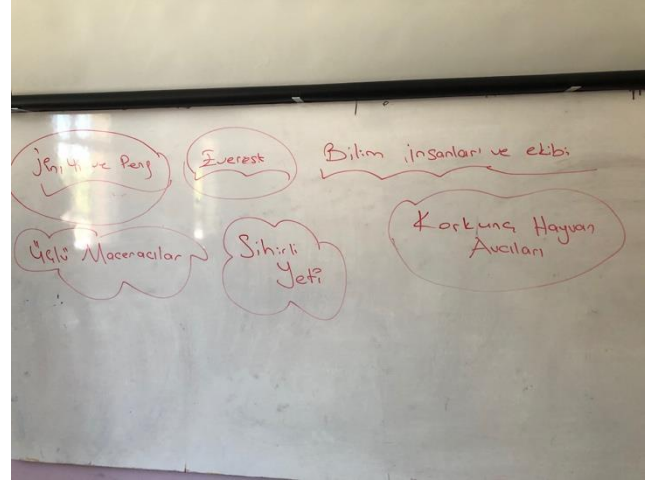 Jin, Yi ve Peng
Everest
Bilim insanları ve ekibi
Üçlü Maceracılar
Sihirli
Yeti
Korkunç Hayvan
Avcıları